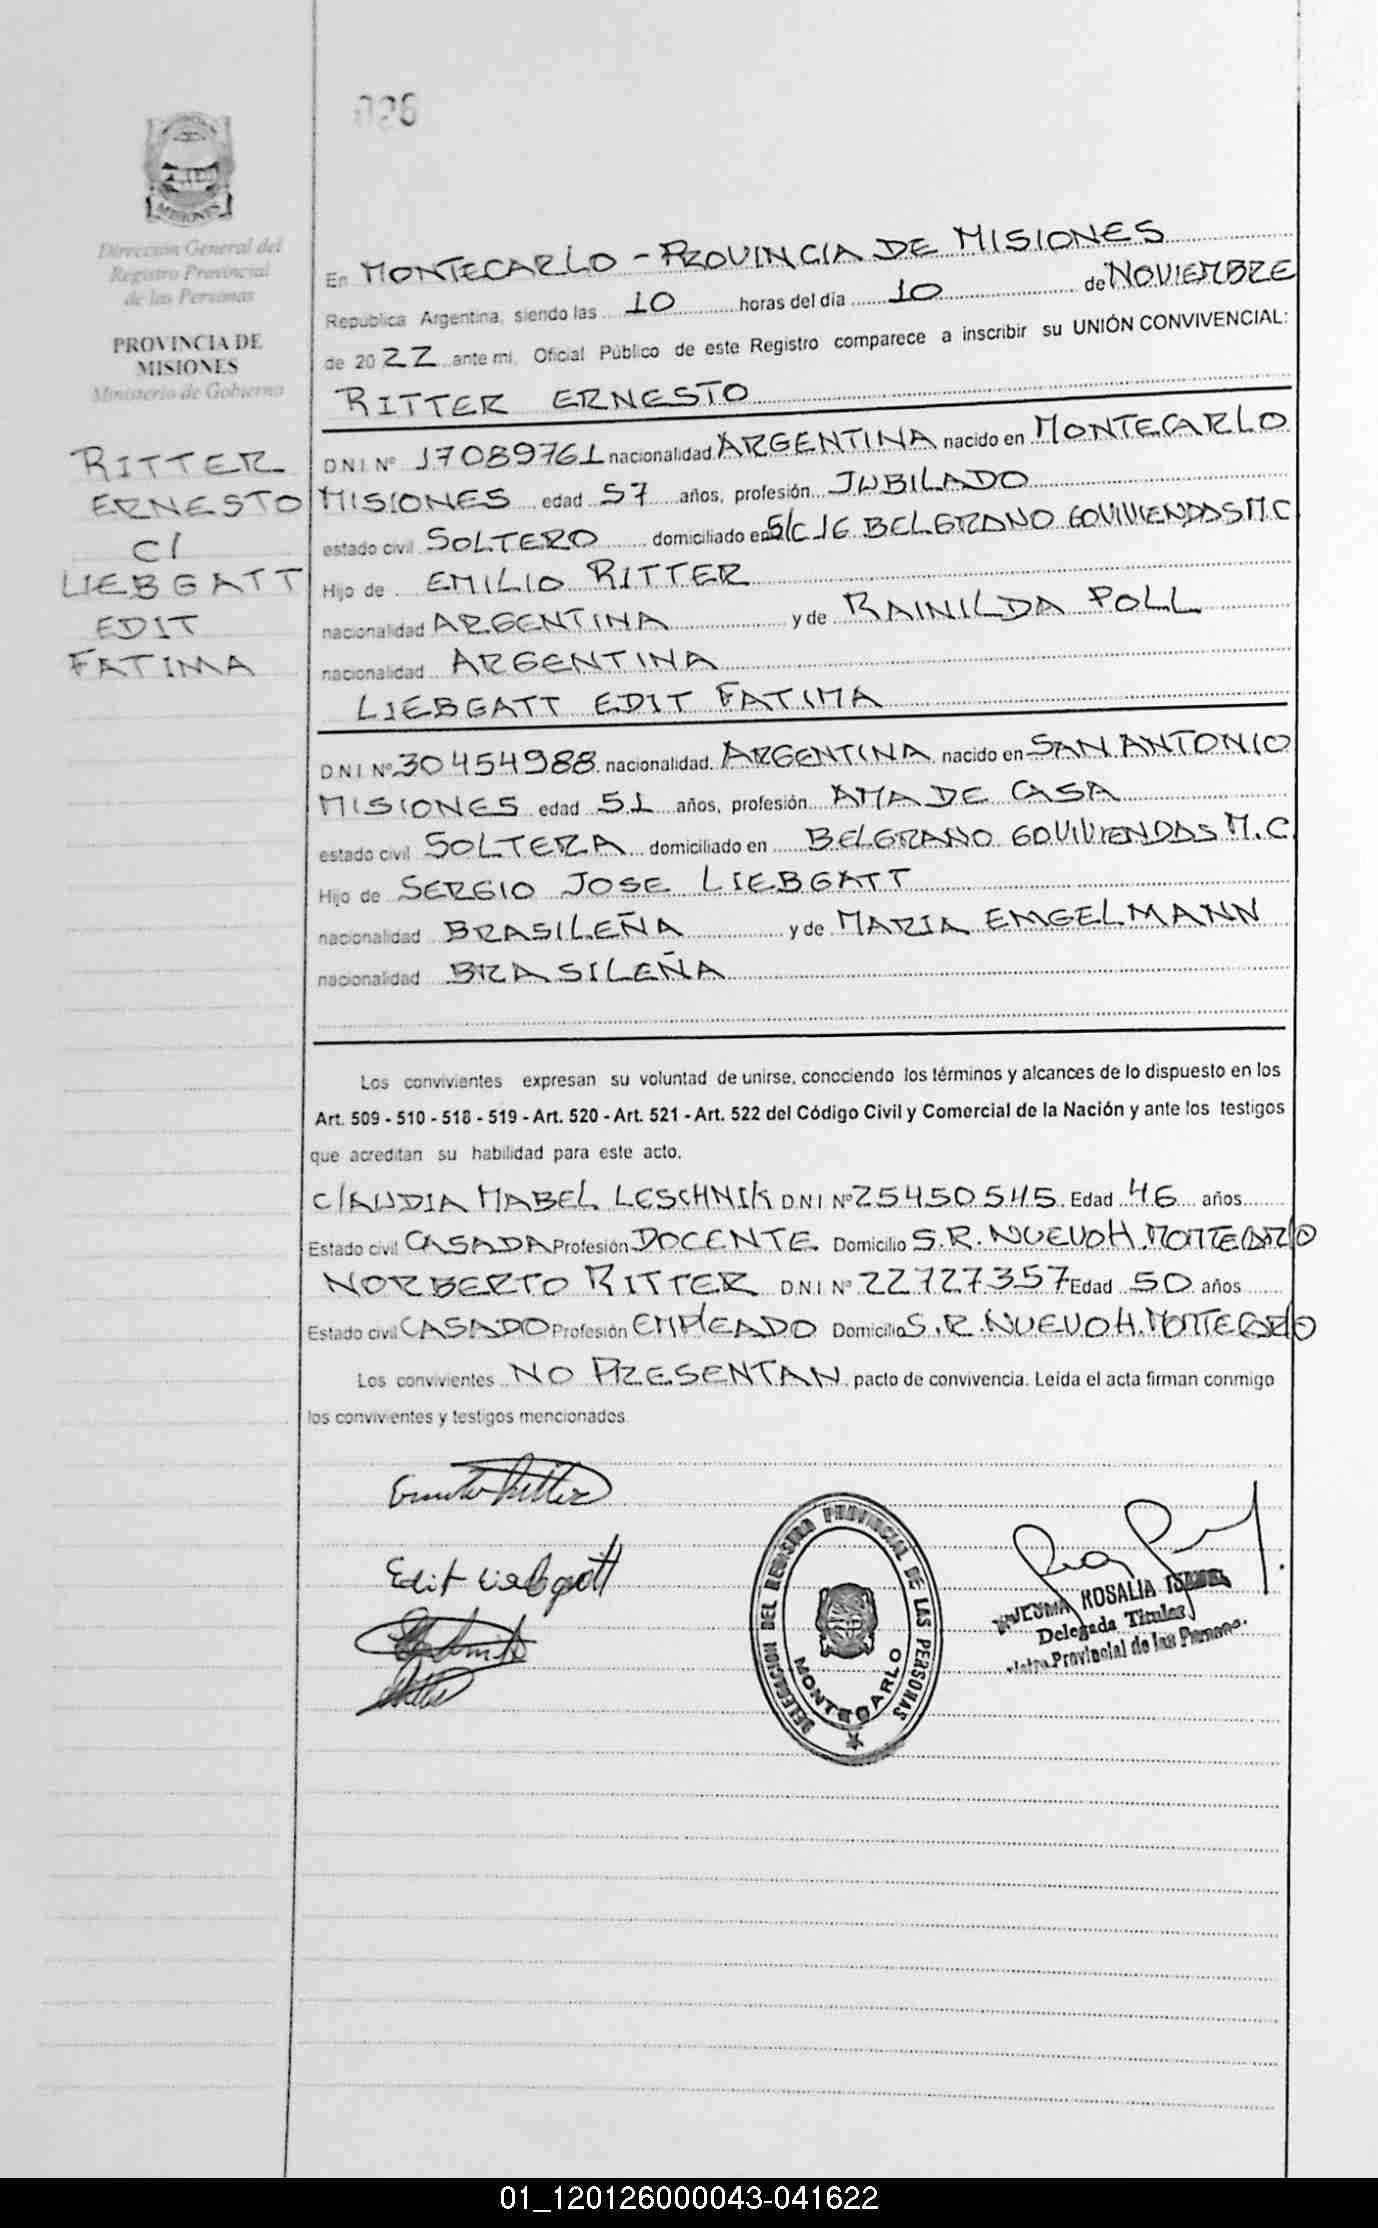 026
Dirección General del
Registro Provincial
de las Personas
PROVINCIA DE
MISIONES
Ministerio de Gobierno
RITTER
ERNESTO
C/
LIEBGATT
EDIT
FATIMA
En MONTECARLO - PROVINCIA DE MISIONES
República Argentina, siendo las 10 horas del día 10 de NOVIEMBRE
de 2022 ante mi, Oficial Público de este Registro comparece a inscribir su UNIÓN CONVIVENCIAL:
RITTER ERNESTO
D.N.I. Nº 17089761 nacionalidad ARGENTINA nacido en MONTECARLO
MISIONES edad 57 años, profesión JUBILADO
estado civil SOLTERO domiciliado en S/C 16 BELGRANO 60 VIVIENDAS M.C
Hijo de EMILIO RITTER
nacionalidad ARGENTINA y de RAINILDA POLL
nacionalidad ARGENTINA
LIEBGATT EDIT FATIMA
D.N.I. Nº 30454988 nacionalidad ARGENTINA nacido en SAN ANTONIO
MISIONES edad 51 años, profesión AMA DE CASA
estado civil SOLTERA domiciliado en BELGRANO 60 VIVIENDAS M.C.
Hijo de SERGIO JOSE LIEBGATT
nacionalidad BRASILEÑA y de MARIA EMGELMANN
nacionalidad BRASILEÑA
Los convivientes expresan su voluntad de unirse, conociendo los términos y alcances de lo dispuesto en los
Art. 509 - 510 - 518 - 519 - Art. 520 - Art. 521 - Art. 522 del Código Civil y Comercial de la Nación y ante los testigos
que acreditan su habilidad para este acto.
CLAUDIA MABEL LESCHNIK D.N.I Nº 25450545 Edad 46 años
Estado civil CASADA Profesión DOCENTE Domicilio S.R. NUEVO H. MONTECARLO
NORBERTO RITTER D.N.I Nº 22727357 Edad 50 años
Estado civil CASADO Profesión EMPLEADO Domicilio S.R. NUEVO H. MONTECARLO
Los convivientes NO PRESENTAN pacto de convivencia. Leída el acta firman conmigo
los convivientes y testigos mencionados.
Ernesto Ritter
Edit Liebgatt
DELEGACION DEL REGISTRO PROVINCIAL DE LAS PERSONAS
MONTECARLO
ROSALIA ISABEL
Delegada Titular
Provincial de las Personas
01_120126000043-041622